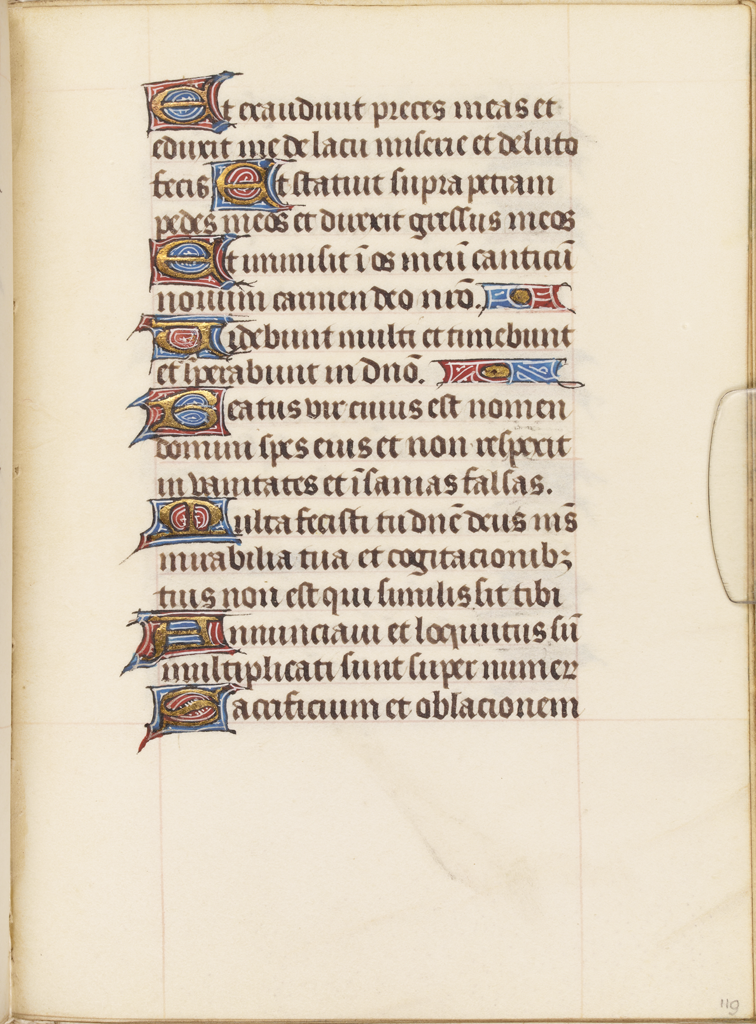 Et exaudiuit preces meas et
eduxit me de lacu miserie et de luto
fecis Et statuit supra petram
pedes meos et direxit gressus meos
Et inmisit ī os meū canticū
nouum carmen deo nr̄o.
Uidebunt multi et timebunt
et sperabunt in dn̄o.
Beatus vir cuius est nomen
domini spes eius et non respexit
in vanitates et īsanias falsas.
Multa fecisti tu dn̄e deus ms̄
mirabilia tua et cogitacionibꝫ
tuis non est qui similis sit tibi
Annunciaui et loquutus sū
multiplicati sunt super numerꝝ
Sacrificium et oblacionem
119